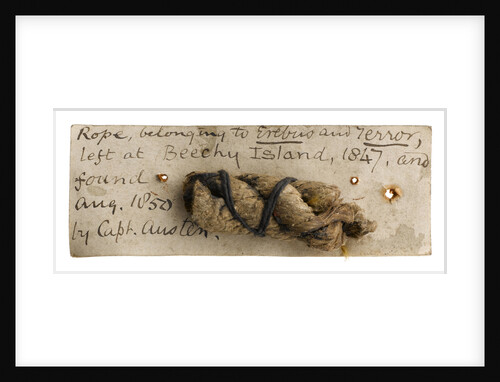 Rope, belonging to Erebus and Terror,
left at Beechy Island, 1847, and
found
Aug. 1850
by Capt. Austen.